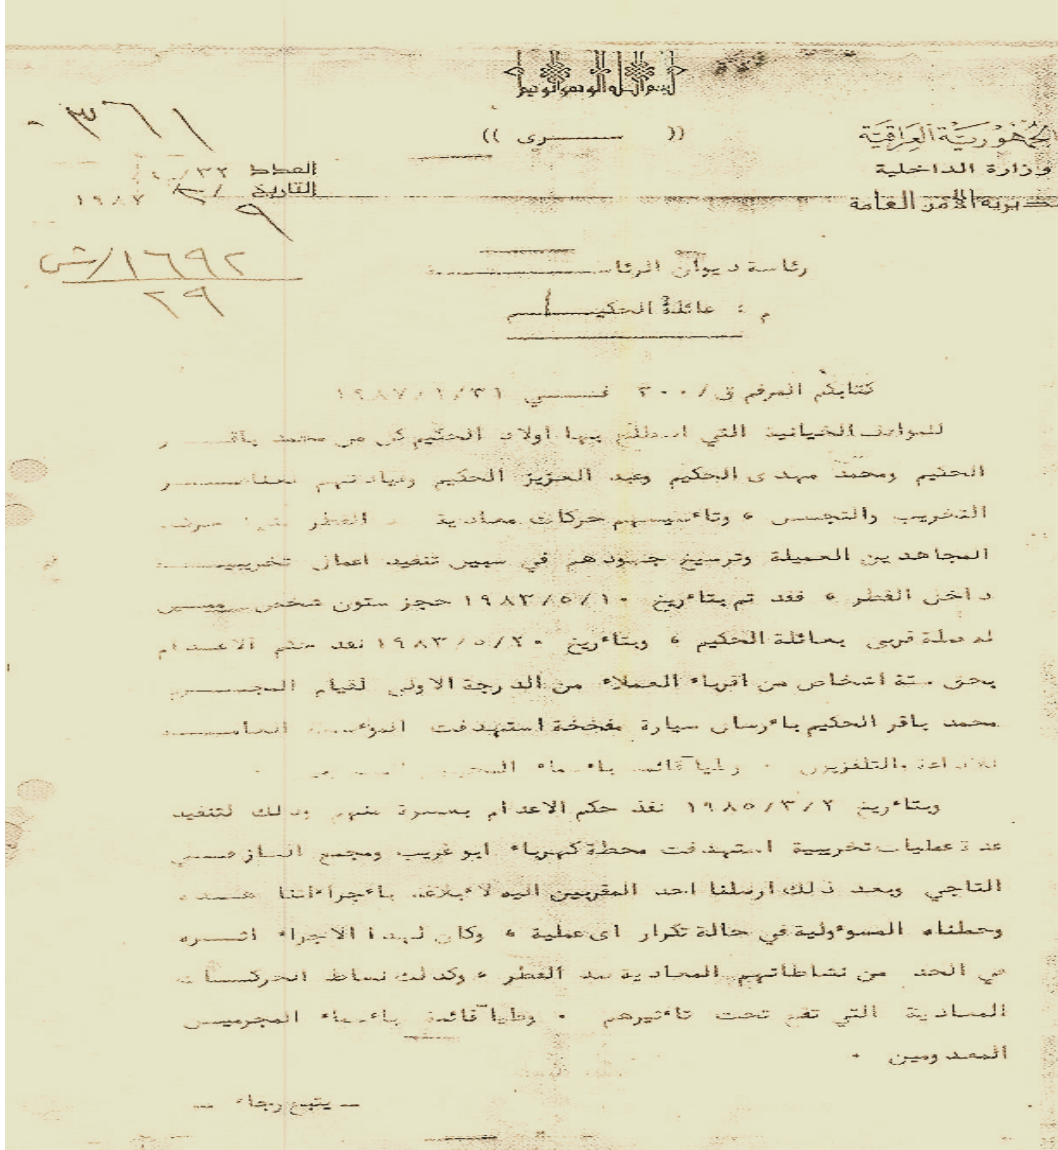 بسم الله الرحمن الرحيم
٣٦١
(( سرى ))
الجمهورية العراقية
وزارة الداخلية
مديرية الأمن العامة
العدد
التاريخ / / ١٩٨٧
٩
١٦٩٢/ش
٢٩
رئاسة ديوان الرئاسة
م : عائلة الحكيم
كتابكم المرقم ق/٣٠٠ في ١٩٨٧/١/٣١
للمواقف الخيانية التي اضطلع بها اولاد الحكيم كل من محمد باقر
الحكيم ومحمد مهدى الحكيم وعبد العزيز الحكيم وقيادتهم لعناصر
التخريب والتجسس ، وتأسيسهم حركات معادية القطر منها
المجاهدين العميلة وترسيخ جهودهم في سبيل تنفيذ اعمال تخريبية
داخل القطر ، فقد تم بتأريخ ١٩٨٣/٥/١٠ حجز ستون شخص ممن
له صلة قربى بعائلة الحكيم ، وبتأريخ ١٩٨٣/٥/٢٠ نفذ حكم الاعدام
بحق ستة اشخاص من اقرباء العملاء من الدرجة الاولى لقيام المجرم
محمد باقر الحكيم بأرسال سيارة مفخخة استهدفت المؤسسة العامة
للاذاعة والتلفزيون . وطيا قائمة بأسماء المجرمين
وبتأريخ ١٩٨٥/٣/٢ نفذ حكم الاعدام بعشرة منهم وذلك لتنفيذ
عدة عمليات تخريبية استهدفت محطة كهرباء ابو غريب ومجمع الغاز في
التاجي وبعد ذلك ارسلنا احد المقربين اليه لأبلاغه بأجراءاتنا هذه
وحملناه المسؤولية في حالة تكرار اى عملية ، وكان لهذا الاجراء اثره
في الحد من نشاطاتهم المعادية ضد القطر ، وكذلك نشاط الحركات
المعادية التي تقع تحت تأثيرهم . وطيا قائمة بأسماء المجرمين
المعدومين .
– يتبع رجاء –